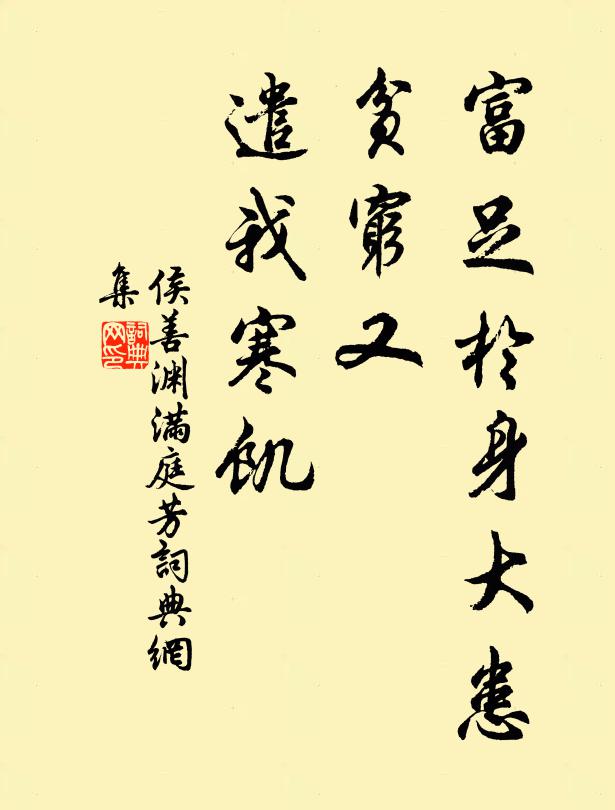 富足於身大患
貧窮又
遣我寒飢
侯善渊滿庭芳詞典網
集
詞典網印